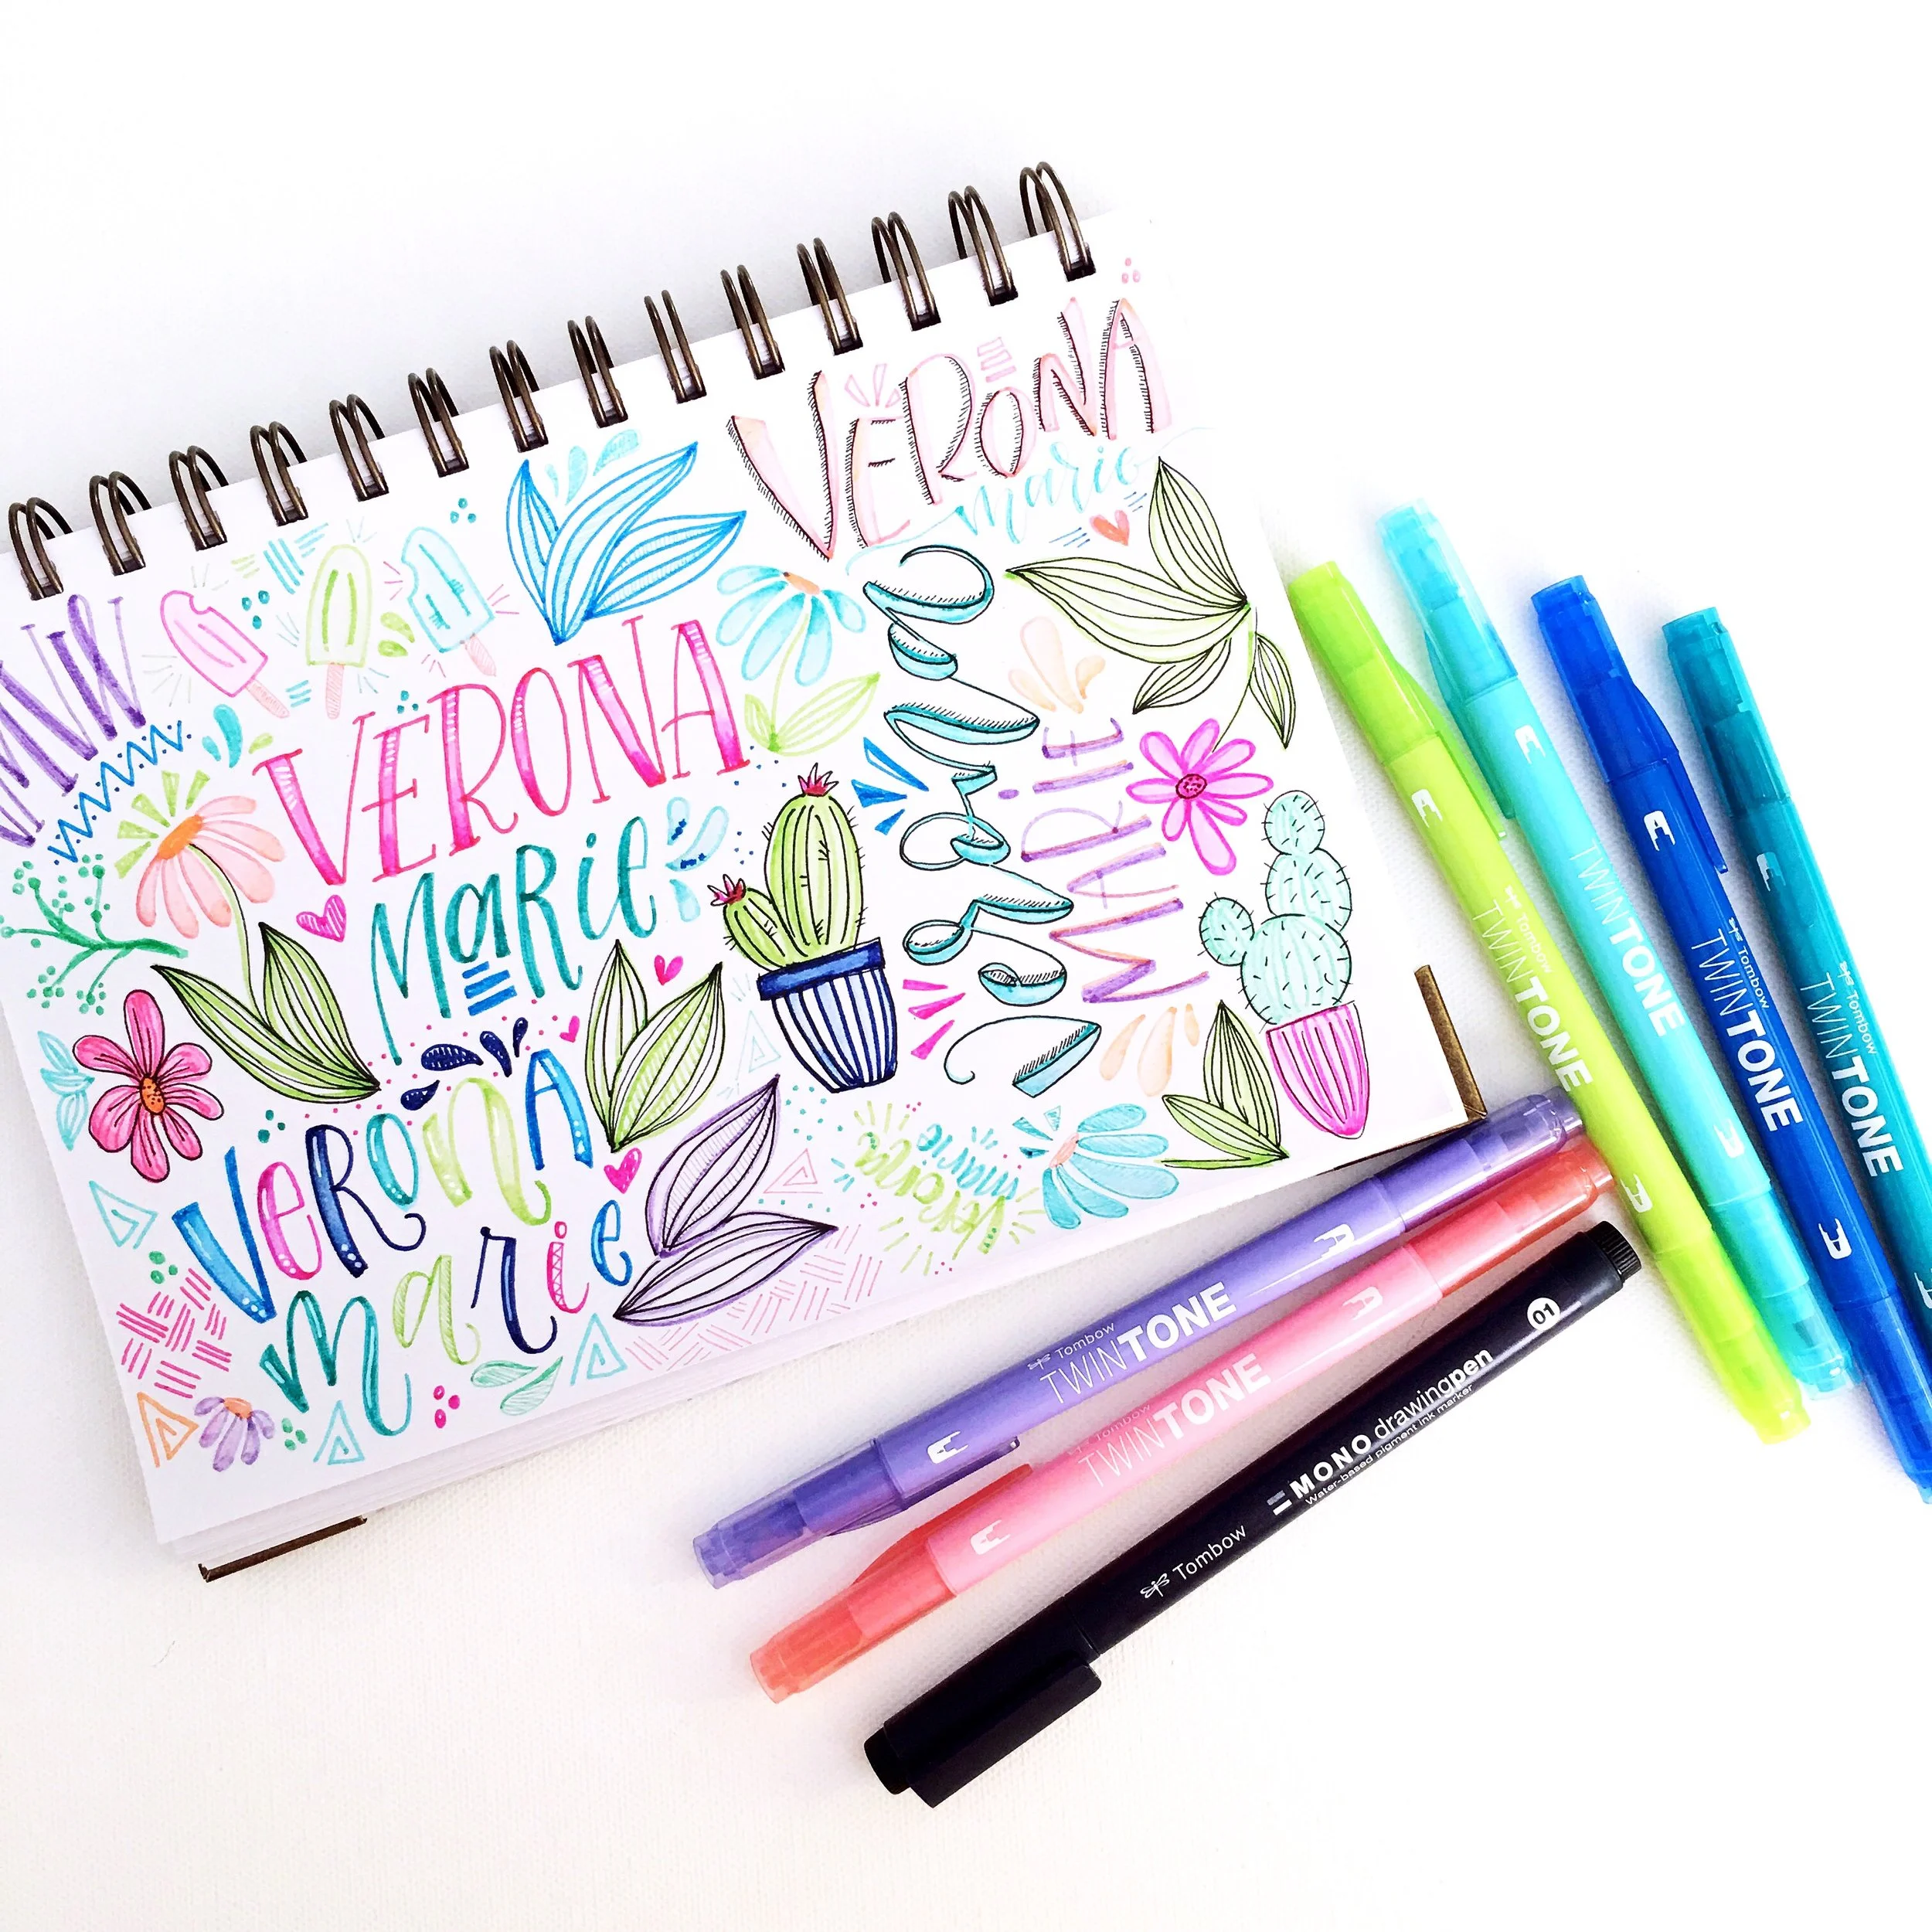 VERONA
marie
VERONA
MaRie
verona
MARiE
VeRonA
marie
verona
marie
verona
Tombow
TWINTONE
TWINTONE
Tombow
TWINTONE
Tombow
TWINTONE
Tombow
TWINTONE
Tombow
TWINTONE
01
MONO drawingpen
Water-based pigment ink marker
Tombow